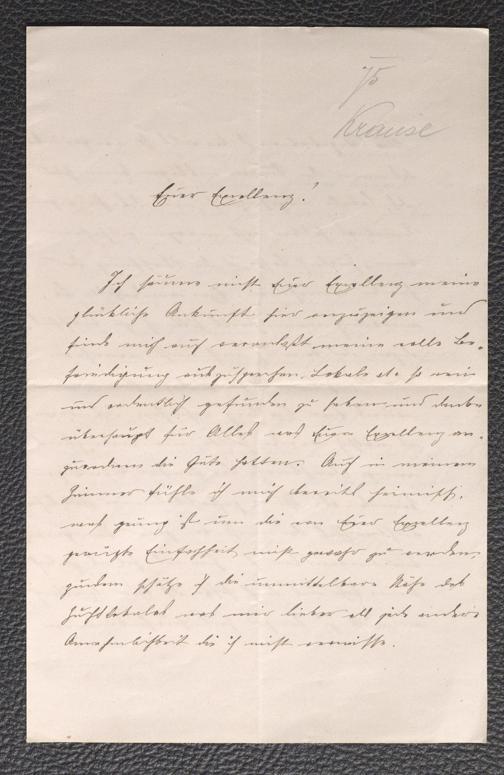 75
Krause
Euer Exzellenz!
Ich säume nicht Euer Exzellenz meine
glückliche Ankunft hier anzuzeigen und
finde mich auch veranlaßt meine volle Be-
friedigung auszusprechen, Lokale etc so rein
und ordentlich gefunden zu haben und danke
überhaupt für Alles was Euer Exzellenz an-
zuordnen die Güte hatten. Auch in meinem
Zimmer fühle ich mich bereits heimisch,
was genug ist um die von Euer Exzellenz
gerügte Einfachheit nicht gewahr zu werden
zudem schätze ich die unmittelbare Nähe des
lokales was mir lieber als jede andere
Annehmlichkeit die ich nicht vermisse.